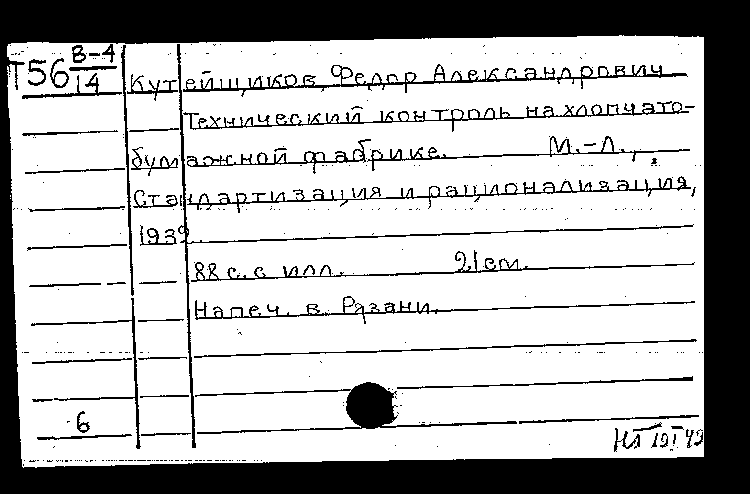 Т56 В-4
14
Кутейщиков, Федор Александрович
Технический контроль на хлопчато-
бумажной фабрике. М.-Л.,
Стандартизация и рационализация,
1932.
88 с. с илл. 21 см.
Напеч. в Рязани.
6